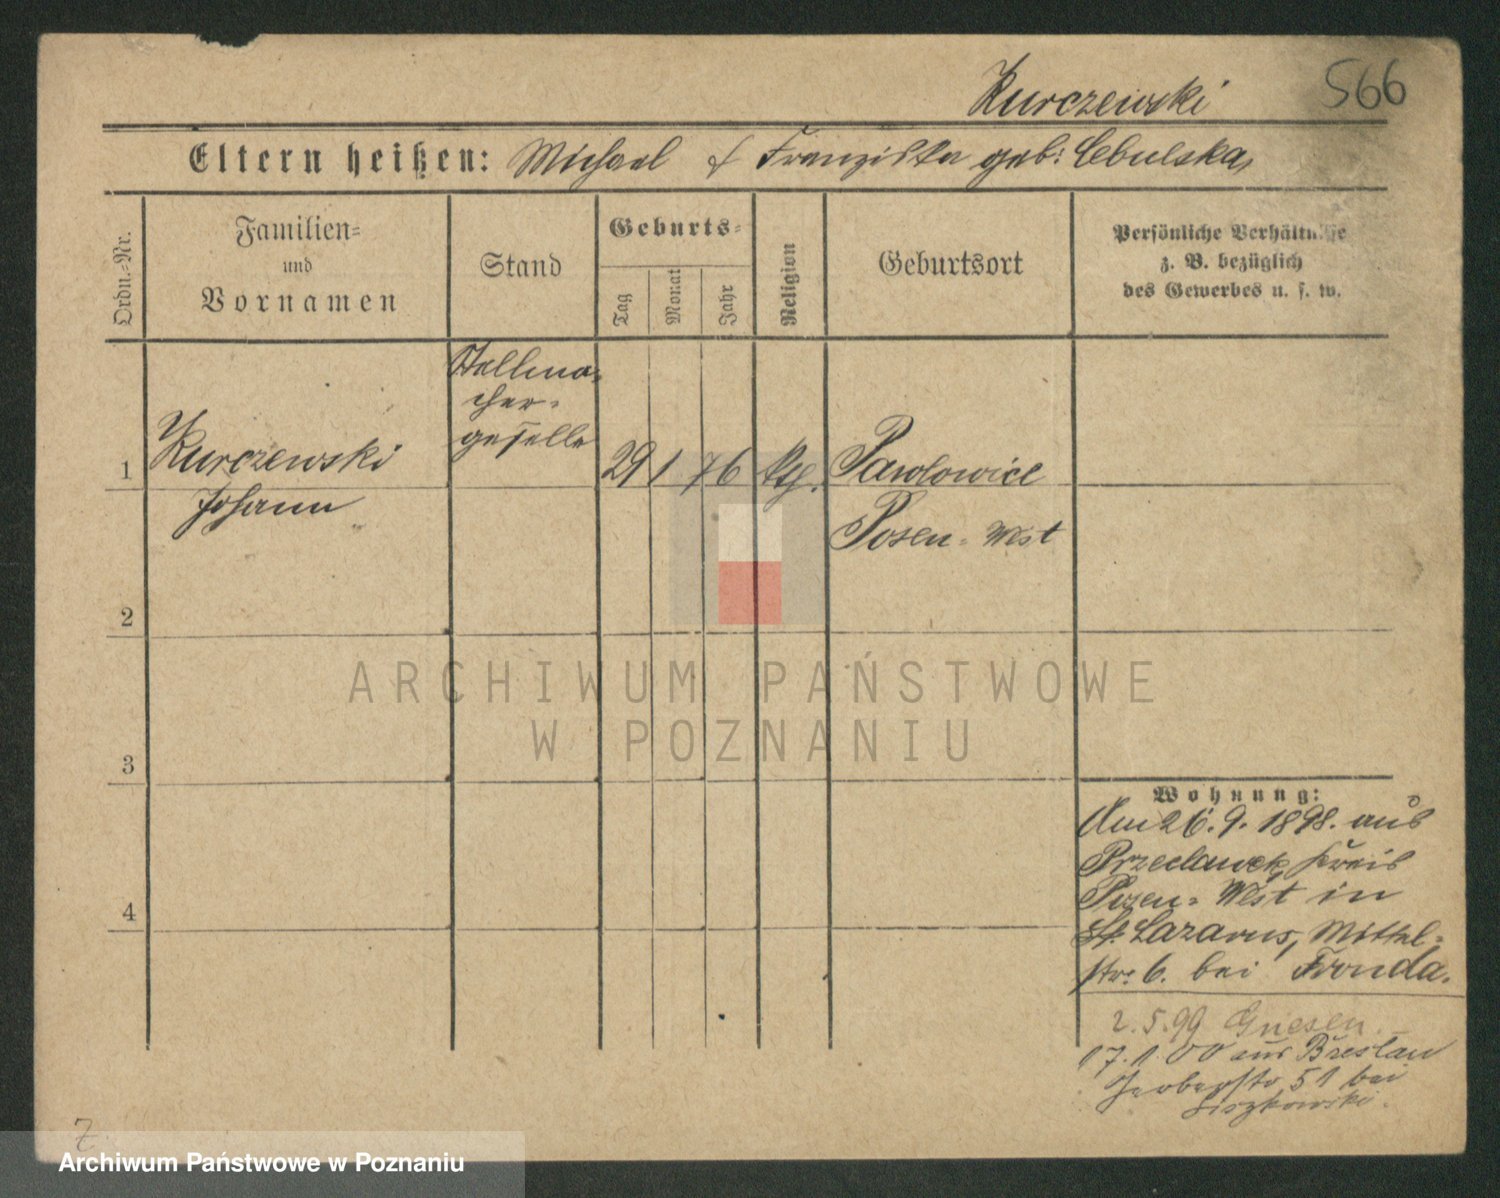 Kurczewski 566
Eltern heißen: Michael & Franziska geb: Cebulska,
Ordn.=Nr.
Familien=
und
Vornamen
Stand
Geburts=
Tag
Monat
Jahr
Religion
Geburtsort
Persönliche Verhältnisse
z. B. bezüglich
des Gewerbes u. s. w.
Stellma=
cher=
geselle
1 Kurczewski 29 1 76 kth. Pawlowice
Johann
Posen = West
2
3
4
ARCHIWUM PAŃSTWOWE
W POZNANIU
Wohnung:
Am 26. 9. 1898. aus
Przeclawek, Kreis
Posen = West in
St. Lazarus, Mittel=
str. 6. bei Fronda.
2.5.99 Gnesen
17.1.00 aus Breslau
Gerberstr 51 bei
Liszkowski.
Z
Archiwum Państwowe w Poznaniu